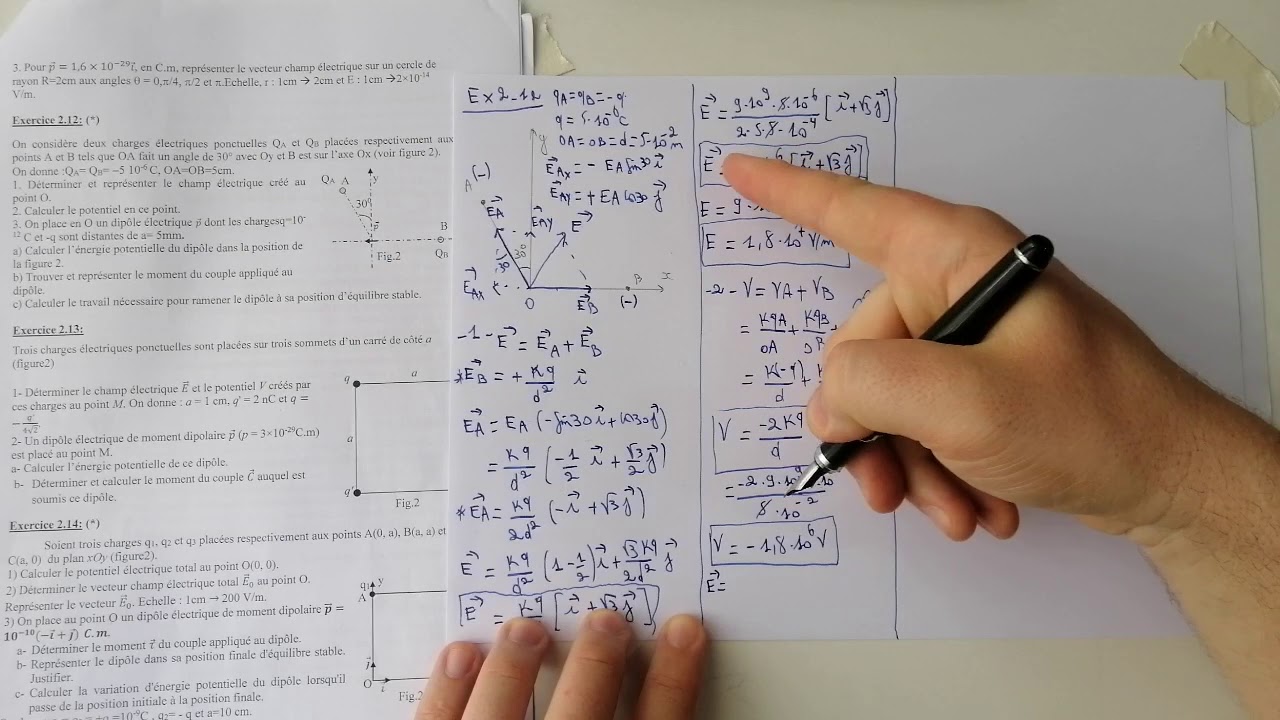 3. Pour p⃗ = 1,6 × 10⁻²⁹i⃗, en C.m, représenter le vecteur champ électrique sur un cercle de
rayon R=2cm aux angles θ = 0,π/4, π/2 et π.Echelle, r : 1cm → 2cm et E : 1cm →2×10⁻¹⁴
V/m.
Exercice 2.12: (*)
On considère deux charges électriques ponctuelles QA et QB placées respectivement aux
points A et B tels que OA fait un angle de 30° avec Oy et B est sur l'axe Ox (voir figure 2).
On donne :QA= QB= −5 10⁻⁶ C, OA=OB=5cm.
1. Déterminer et représenter le champ électrique créé au
point O.
2. Calculer le potentiel en ce point.
3. On place en O un dipôle électrique p⃗ dont les chargesq=10-
¹² C et -q sont distantes de a= 5mm.
a) Calculer l'énergie potentielle du dipôle dans la position de
la figure 2.
b) Trouver et représenter le moment du couple appliqué au
dipôle.
c) Calculer le travail nécessaire pour ramener le dipôle à sa position d'équilibre stable.
QA A
y
30°
p⃗
B
QB
Fig.2
Exercice 2.13:
Trois charges électriques ponctuelles sont placées sur trois sommets d'un carré de côté a
(figure2)
1- Déterminer le champ électrique E⃗ et le potentiel V créés par
ces charges au point M. On donne : a = 1 cm, q' = 2 nC et q =
− q'/4√2
2- Un dipôle électrique de moment dipolaire p⃗ (p = 3×10⁻²⁹C.m)
est placé au point M.
a- Calculer l'énergie potentielle de ce dipôle.
b- Déterminer et calculer le moment du couple C⃗ auquel est
soumis ce dipôle.
q
a
a
q'
Fig.2
Exercice 2.14: (*)
Soient trois charges q₁, q₂ et q₃ placées respectivement aux points A(0, a), B(a, a) et
C(a, 0) du plan xOy (figure2).
1) Calculer le potentiel électrique total au point O(0, 0).
2) Déterminer le vecteur champ électrique total E⃗₀ au point O.
Représenter le vecteur E⃗₀. Echelle : 1cm → 200 V/m.
3) On place au point O un dipôle électrique de moment dipolaire p⃗ =
10⁻¹⁰(−i⃗ + j⃗) C.m.
a- Déterminer le moment τ⃗ du couple appliqué au dipôle.
b- Représenter le dipôle dans sa position finale d'équilibre stable.
Justifier.
c- Calculer la variation d'énergie potentielle du dipôle lorsqu'il
passe de la position initiale à la position finale.
=10⁻⁹C , q₂= - q et a=10 cm.
q₁ y
A
j⃗
O
i⃗
Fig.2
Ex 2-12
qA = qB = -q
q = 5·10⁻⁶C
OA = OB = d = 5·10⁻²m
E⃗Ax = - EA sin30 i⃗
E⃗Ay = + EA cos30 j⃗
y
A (-)
E⃗A
E⃗Ay
E⃗
30
30°
E⃗Ax
O
E⃗B
B
(-)
x
-1- E⃗ = E⃗A + E⃗B
* E⃗B = + Kq/d² i⃗
E⃗A = EA (-sin30 i⃗ + cos30 j⃗)
= Kq/d² (-1/2 i⃗ + √3/2 j⃗)
* E⃗A = Kq/2d² (-i⃗ + √3 j⃗)
E⃗ = Kq/d² (1 - 1/2) i⃗ + √3Kq/2d² j⃗
E⃗ = Kq [i⃗ + √3 j⃗]
E⃗ = 9·10⁹·8·10⁻⁶ / 2·5·8·10⁻⁴ [i⃗ + √3 j⃗]
E⃗ = [i⃗ + √3 j⃗]
E = 9·
E = 1,8·10⁷ V/m
-2- V = VA + VB
= KqA/OA + KqB
= K(-q)/d +
V = -2Kq/d
= -2·9·10⁹ ·10 / 8·10⁻²
V = -1,8·10⁶ V
E⃗ =